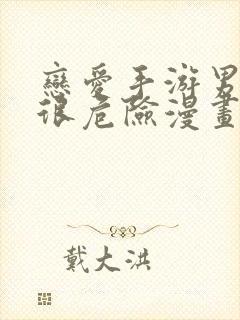 戀愛手游男
很危險漫畫
戴大洪